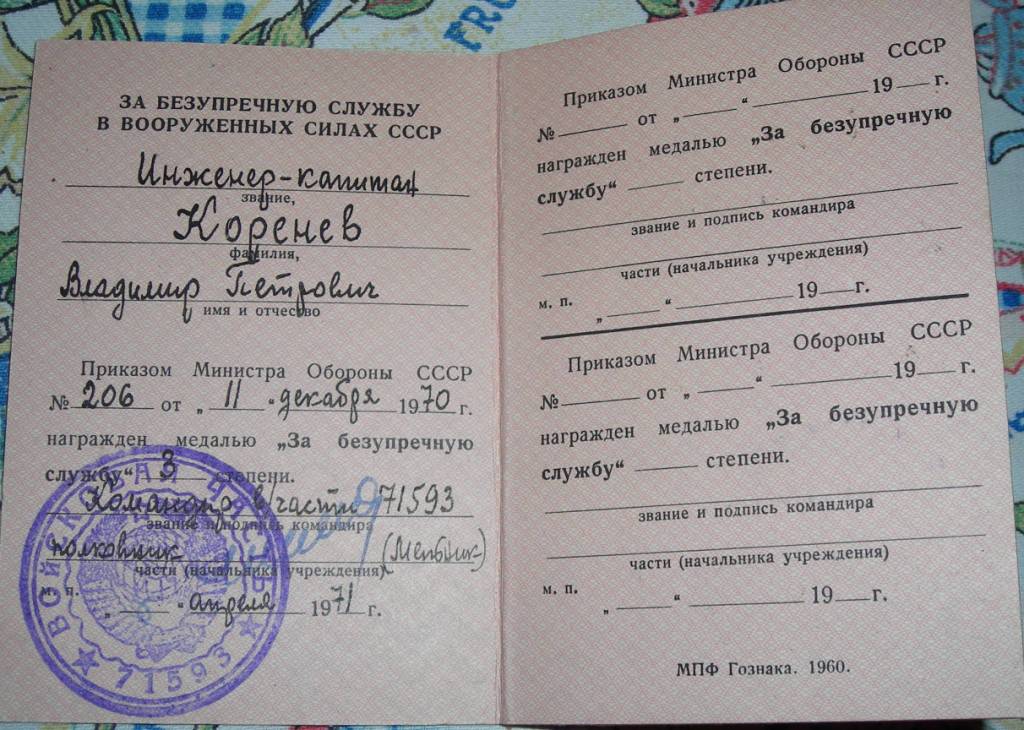 FRU
ЗА БЕЗУПРЕЧНУЮ СЛУЖБУ
В ВООРУЖЕННЫХ СИЛАХ СССР
Инженер-капитан
звание,
Коренев
фамилия,
Владимир Петрович
имя и отчество
Приказом Министра Обороны СССР
№ 206 от „ 11 “ декабря 1970 г.
награжден медалью „За безупречную
службу“ 3 степени.
Командир в/части 71593
звание и подпись командира
полковник (Мельник)
части (начальника учреждения)
м. п.
„ “ апреля 1971 г.
ВОЙСКОВАЯ ЧАСТЬ
71593
Приказом Министра Обороны СССР
№ от „ “ 19 г.
награжден медалью „За безупречную
службу“ степени.
звание и подпись командира
части (начальника учреждения)
м. п.
„ “ 19 г.
Приказом Министра Обороны СССР
№ от „ “ 19 г.
награжден медалью „За безупречную
службу“ степени.
звание и подпись командира
части (начальника учреждения)
м. п.
„ “ 19 г.
МПФ Гознака. 1960.